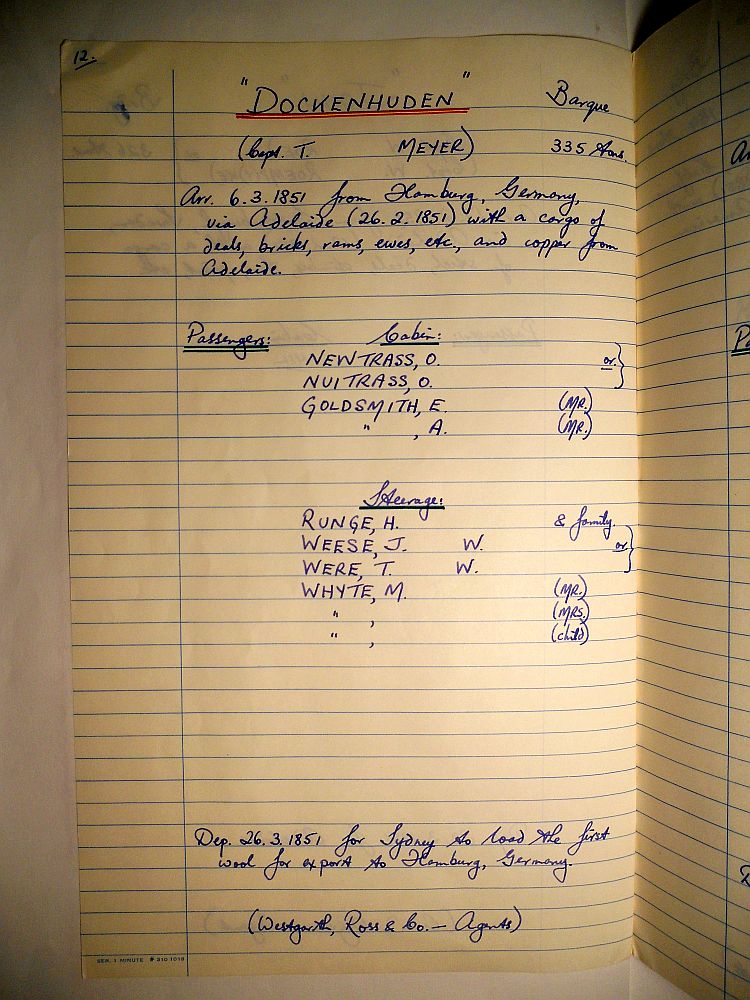 12.
"DOCKENHUDEN" Barque
(Capt. T. MEYER) 335 tons.
Arr. 6.3.1851 from Hamburg, Germany,
via Adelaide (26.2.1851) with a cargo of
deals, bricks, rams, ewes, etc., and copper from
Adelaide.
Passengers: Cabin:
NEWTRASS, O. or }
NUITRASS, O.
GOLDSMITH, E. (MR.)
" , A. (MR.)
Steerage:
RUNGE, H. & family.
WEESE, J. W. or }
WERE, T. W.
WHYTE, M. (MR.)
" , (MRS.)
" , (child)
Dep. 26.3.1851 for Sydney to load the first
wool for export to Hamburg, Germany.
(Westgarth, Ross & Co. — Agents)
SER. 1 MINUTE # 310 1018